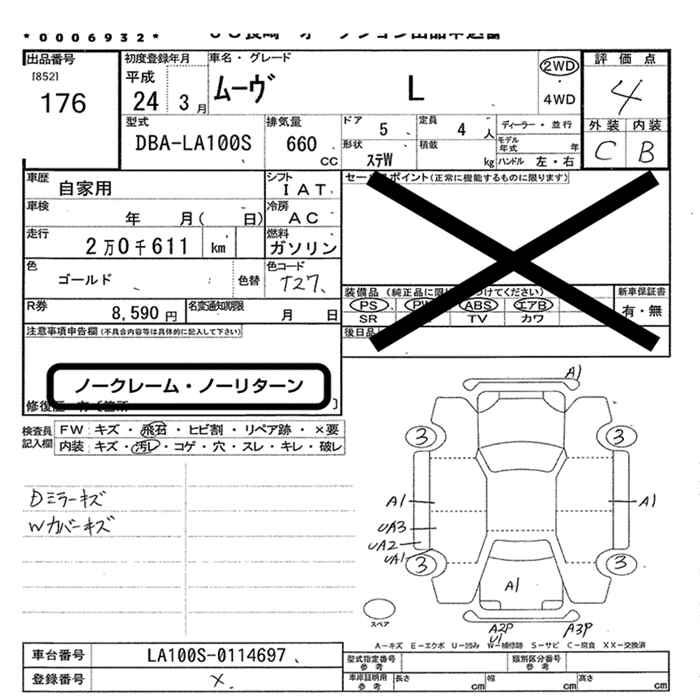 *0006932*
出品番号
[852]
176
初度登録年月
平成
24 3月
車名・グレード
ムーヴ L
2WD
4WD
評価点
4
外装 内装
C B
型式
DBA-LA100S
排気量
660
cc
ドア
5
定員
4人
形状
ステW
積載
kg
ディーラー・並行
モデル年式 年
ハンドル 左・右
車歴
自家用
シフト
IAT
車検
年 月( 日)
冷房
AC
走行
2万0千611 km
燃料
ガソリン
色
ゴールド
色替
色コード
T27
R券
8,590円
名変通知期限
月 日
セールスポイント(正常に機能するものに限ります)
装備品
PS PW ABS エアB
SR TV カワ
新車保証書
有・無
後日品
注意事項申告欄(不具合内容等は具体的に記入して下さい)
ノークレーム・ノーリターン
検査員記入欄
FW キズ・飛石・ヒビ割・リペア跡・×要
内装 キズ・汚レ・コゲ・穴・スレ・キレ・破レ
Dミラーキズ
Wカバーキズ
A1
3 3
A1 A1
UA3
UA2
UA1
3 3
A1
スペア
A2P
U1
A3P
A-キズ E-エクボ U-凹み W-補修跡 S-サビ C-腐食 XX-交換済
車台番号
LA100S-0114697
登録番号
×
型式指定番号
参考
類別区分番号
参考
車庫証明用
参考
長さ cm
幅 cm
高さ cm